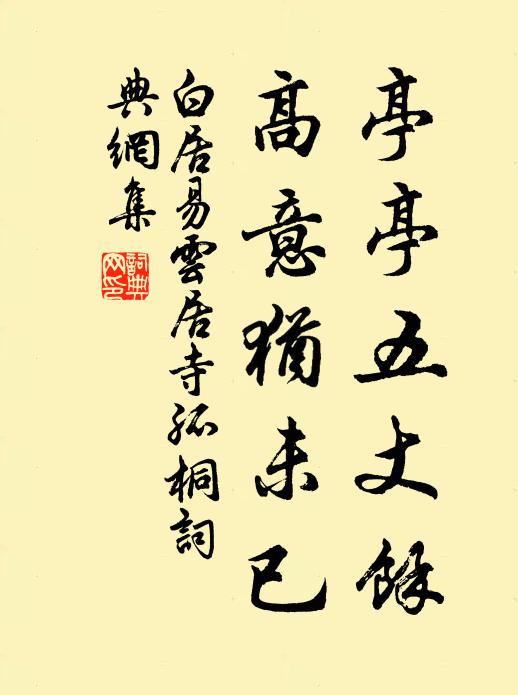 亭亭五丈餘
高意猶未已
白居易雲居寺孤桐詞
典網集
詞典網印